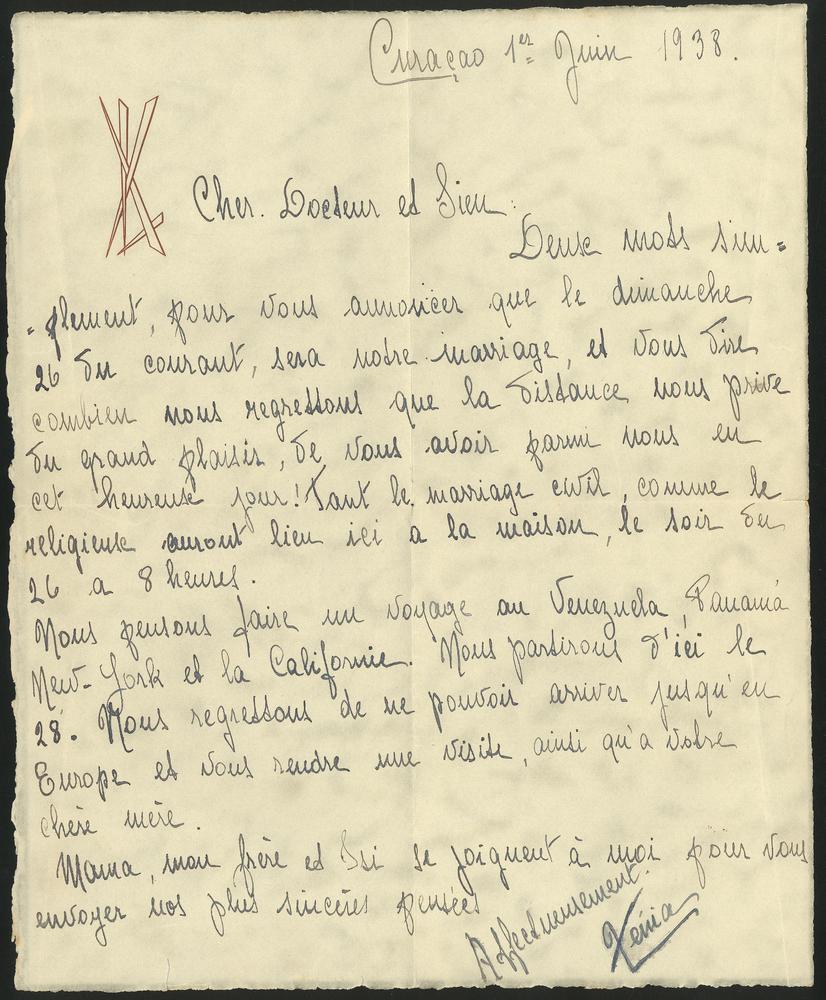 Curaçao 1er Juin 1938.
Cher. Docteur et Sien.
Deux mots sim=
=plement, pour vous annoncer que le dimanche
26 du courant, sera notre marriage, et vous dire
combien nous regrettons que la distance nous prive
du grand plaisir, de vous avoir parmi nous en
cet heureux jour! Tant le marriage civil, comme le
religieux auront lieu ici a la maison, le soir du
26 a 8 heures.
Nous pensons faire un voyage au Venezuela, Panamá
New-York et la Californie. Nous partirons d'ici le
28. Nous regrettons de ne pouvoir arriver jusqu'en
Europe et vous rendre une visite, ainsi qu'a votre
chère mère.
Mama, mon frère et Isi se joignent à moi pour vous
envoyer nos plus sincères pensées
Affectueusement.
Xenia